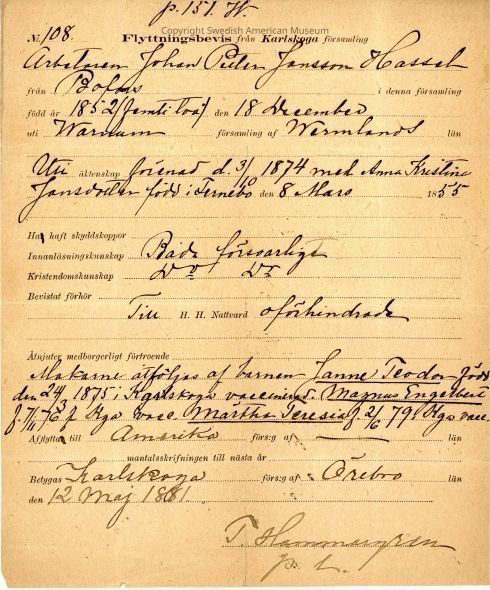 p. 151. W.
Copyright Swedish American Museum
№ 108. Flyttningsbevis från Karlskoga församling
Arbetaren Johan Peter Jansson Hassel
från Bofors i denna församling
född år 1852 (femtitvå) den 18 December
uti Warnum församling af Wermlands län
Uti äktenskap förenad d. 3/10 1874 med Anna Kristina
Jansdotter född i Fernebo den 8 Mars 1855
Har haft skyddskoppor
Innanläsningskunskap Båda försvarligt
Kristendomskunskap Do Do
Bevistat förhör
Till H. H. Nattvard oförhindrade
Åtnjuter medborgerligt förtroende
Makarne åtföljas af barnen Janne Teodor född
den 1875 i Karlskoga vaccinerad, Magnus Engelbert
f. Kga vacc. Martha Teresia f. 2/6 79 Kga vacc.
Afflytta till Amerika förs:g af — län
mantalsskrifningen till nästa år
Betygas Karlskoga förs:g af Örebro län
den 12 Maj 1881
p. t.